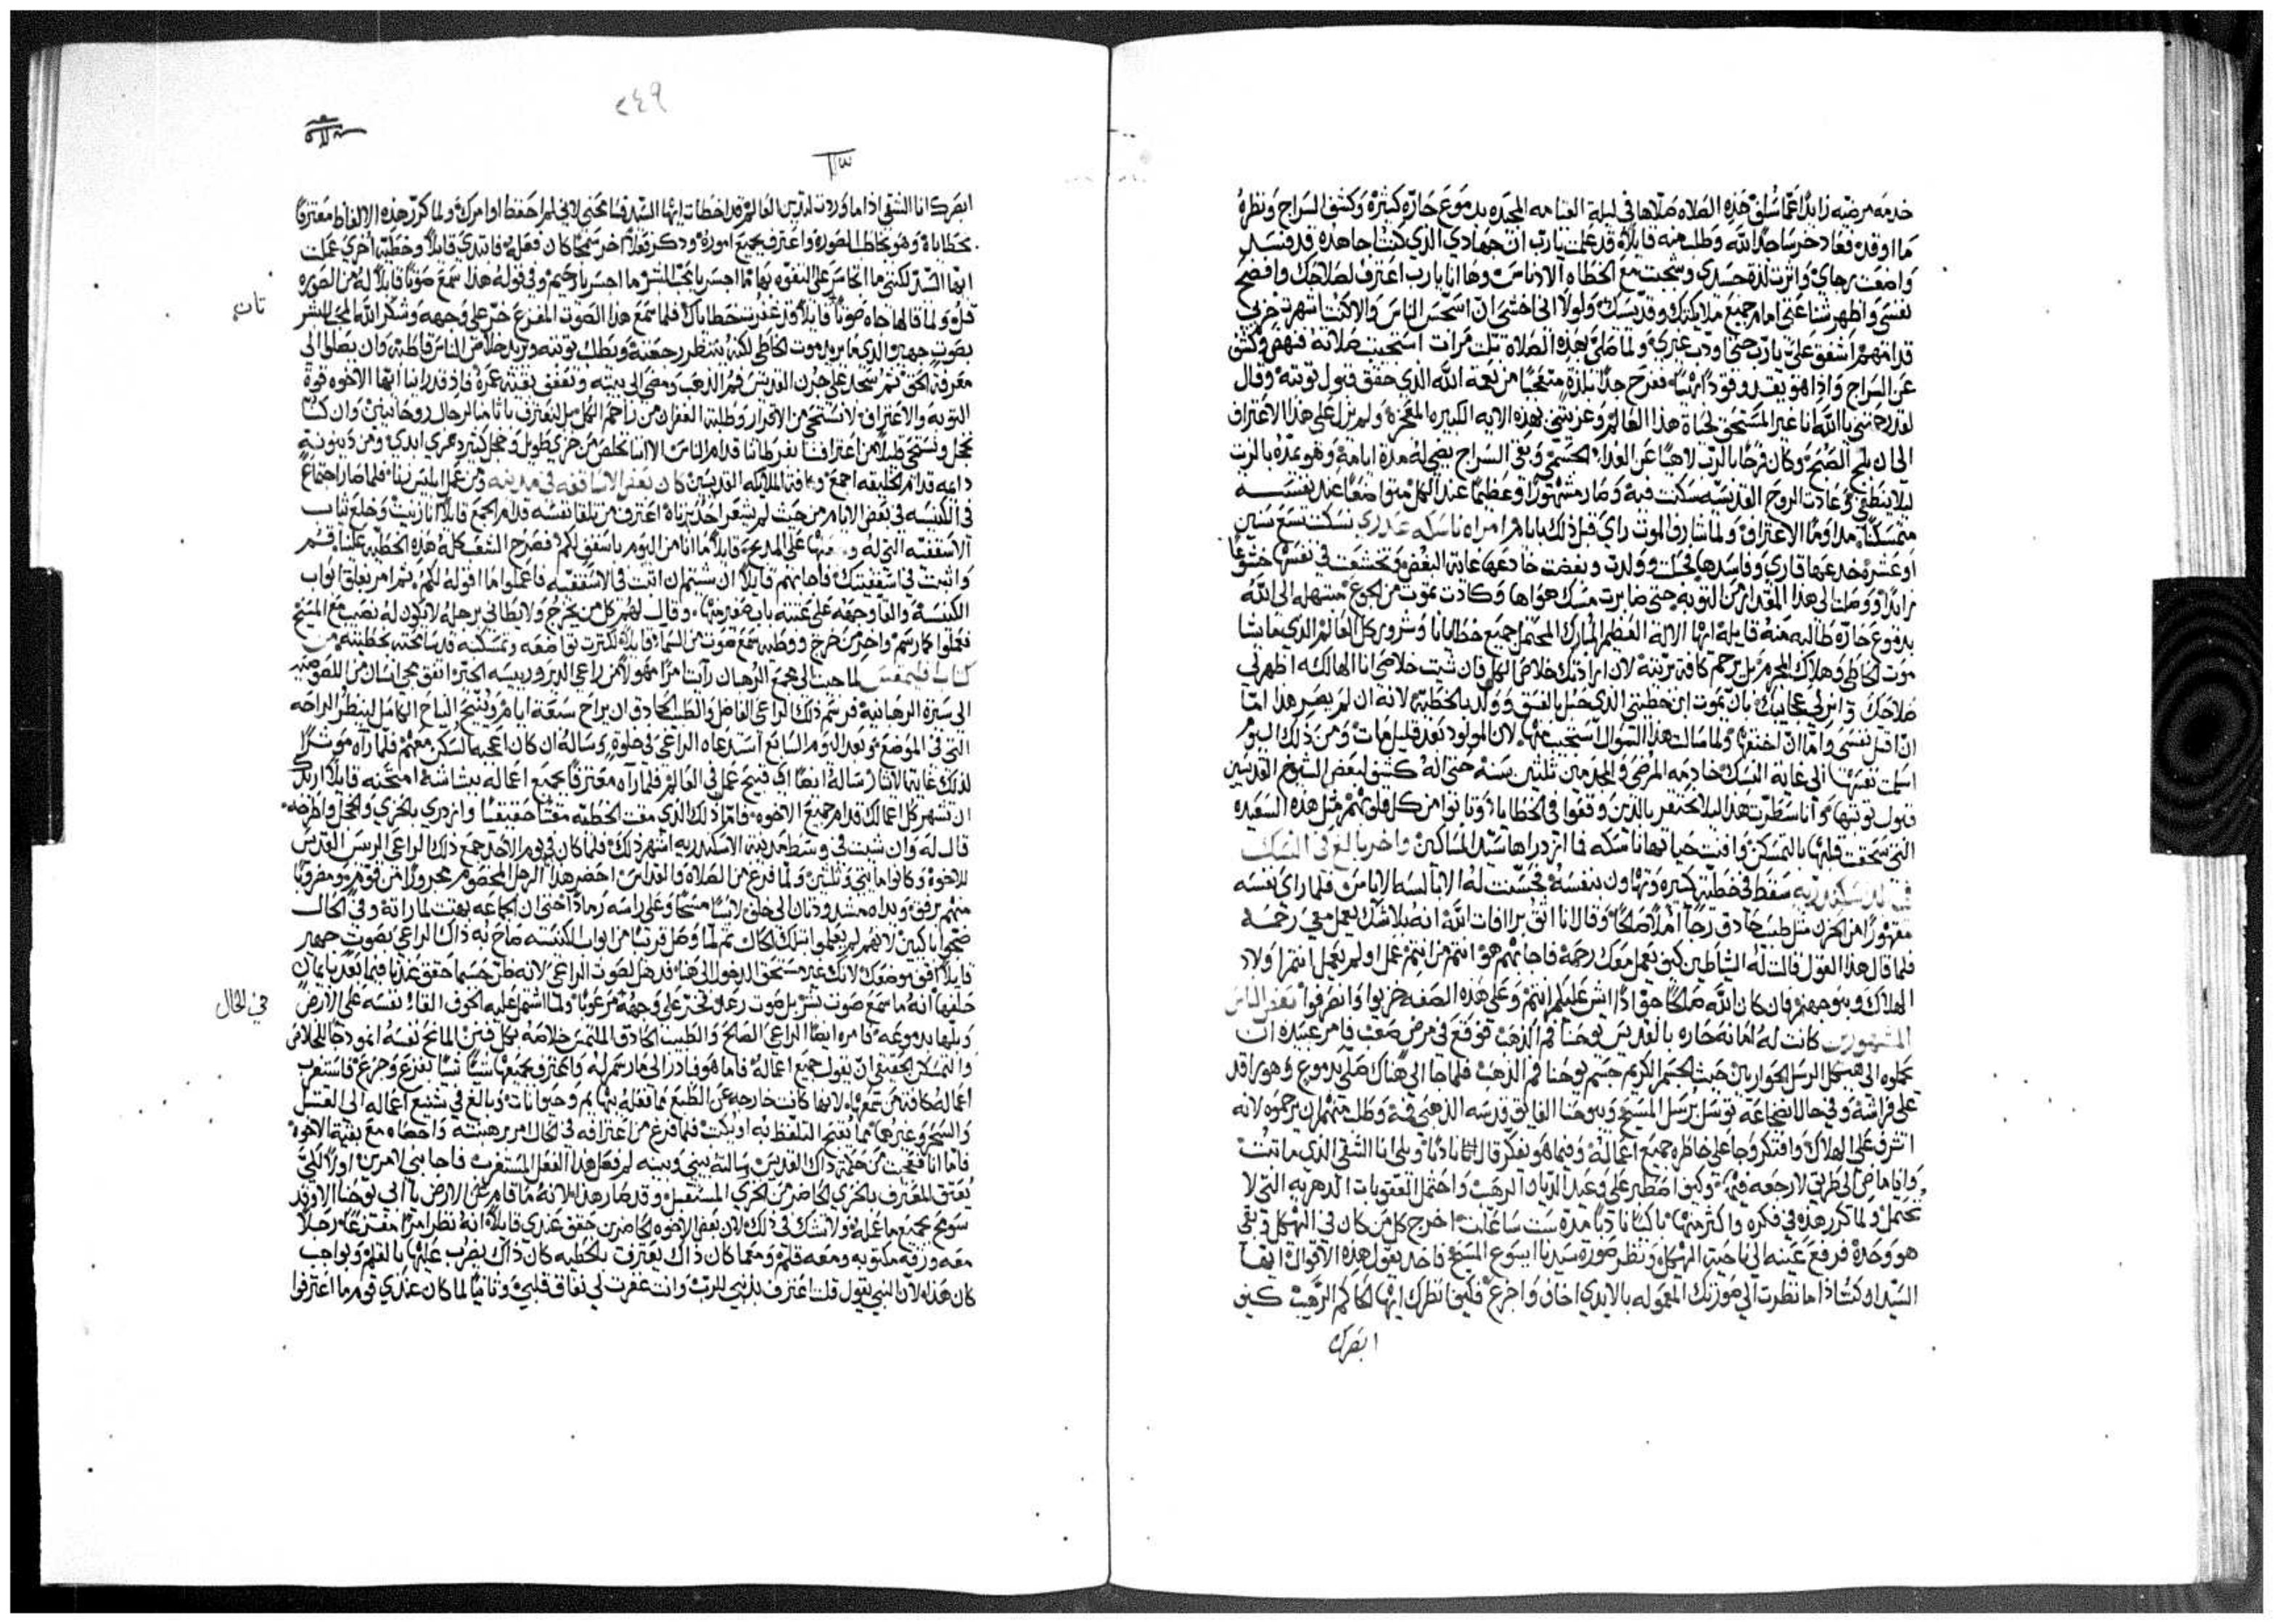 خدمه مرضيه زايدا عما سلف هذه الصلاه صلاها في ليلة القيامه المجده بدموع حاره كثيرة وكشف السراج ونظره
ما اوقد فعاد خر ساجدا لله وطلب منه قايلا قد علمت يارب ان جهادي الذي كنت اجاهده قد فسد
واضعت رجاي واثرت لذة جسدي وسجت مع الخطاه الادناس وها انا يارب اعترف لصلاحك وافضح
نفسي واظهر شناعتي امام جميع ملايكتك وقديسيك ولولا اني اخشى ان استحسر الناس والا كنت اشهرت خزيي
قدامهم اشفق علي يارب حتى اودب غيري ولما صلى بهذه الصلاة تلت مرات استجيبت صلاته فنهض وكشف
عن السراج واذا هو يقد وقودا بهيا ففرح جدا بلذة متعجبا من نعمة الله الذي حقق قبول توبته وقال
لقد رحمتني يا الله انا غير المستحق لحياة هذا العالم وعزيتني بهذه الايه الكبيره المعجزة ولم يزل على هذا الاعتراف
الى ان بلج الصبح وكان فرحا بالرب لاهيا عن الغداء الجسمي وبقي السراج يضي له مدة ايامه وهو يمده بالزيت
ليلا ينطفي وعادت الروح القدسيه سكنت فيه وصار مشهورا وعظيما عند الكل متواضعا عند نفسه
متمسكنا مداوما الاعتراف ولما شارف الموت راى قبل ذلك بايام امراه ناسكه عذري نسكت تسع سنين
او عشره خدعها قاري وفاسدها فحبلت وولدت وبغضت خادعها غاية البغض وتخشعت في نفسها خشوعا
زايدا ووصلت الى هذا المقدار من التوبه حتى صابرت مسك هواها وكادت تموت من الجوع مبتهله الى الله
بدموع حاره طالبه منه قايله ايها الاله العظيم المبارك المحتمل جميع خطايانا وشرور كل العالم الذي ما تشا
موت الخاطي وهلاك المجرم بل ترحم كافة بريته لان ارادتك خلاص الكل فان شيت خلاصي انا الهالكه اظهر لي
صلاحك وارني عجايبك بان يموت ابن خطيتي الذي حبل بالفسق وولد بالخطيه لانه ان لم يصر هذا اما
ان اقتل نفسي واما ان اختنقه ولما سالت هذا السوال استجيب منها لان المولود بعد قليل مات ومن ذلك اليوم
اسلمت نفسها الى غاية النسك خادمه المرضى والمجدمين ثلثين سنه حتى انه كشف لبعض الشيوخ القديسين
قبول توبتها وانا سطرت هذا ليلا نحتقر بالذين وقعوا في الخطايا وتابوا من كل قلوبهم مثل هذه السعيده
التي سحقت قلبها بالتمسكن وافنت حياتها ناسكه فما ازدراها سيد المساكين واخر بالغ في النسك
سقط في خطيه كبيره وتهاون بنفسه فحسنت له الابالسه الاياس فلما راى نفسه
مقهورا من الحزن مثل طبيب حادق رجا املا صالحا وقال انا اثق برافات الله انه بلا شك يعمل معي رحمه
فلما قال هذا القول قالت له الشياطين كيف يعمل معك رحمة فاجابهم هو انتم من انتم عمل اولم يعمل انتم اولاد
الهلاك وبنو جهنم فان كان الله صالحا حقا اذا ايش عليكم انتم وعلى هذه الصفه خزيوا وانصرفوا بعض الناس
المشهورين كانت له امانه حاره بالقديس يوحنا فم الذهب فوقع في مرض صعب فامر عبيده ان
يحملوه الى هيكل الرسل الحواريين حيث الجسم الكريم جسم يوحنا فم الذهب فلما جا الى هناك صلى بدموع وهو راقد
على فراشه وفي حال انضجاعه توسل برسل المسيح وبيوحنا الفايق قدسه الذهبي فمه وطلب منهم ان يرحموه لانه
اشرف على الهلاك وافتكر وجا على خاطره جميع اعماله وفيما هو يفكر قال ويلي انا الشقي الذي ما تبت
وانا ماض الى طريق لا رجعه فيها وكيف اصطبر على وعيد الديان الرهيب واحتمل العقوبات الدهريه التي لا
تحتمل ولما كرر هذه في فكره واكثر منها باكيا نادبا مدة ست ساعات اخرج كل من كان في الهيكل وبقي
هو وحده فرفع عينيه الى ناحية الهيكل ونظر صورة سيدنا ايسوع المسيح فاخذ يقول هذه الاقوال ايها
السيد او كنت اذا ما نظرت الى صورتك المعموله بالايدي اخاف واجزع فكيف انظرك ايها الحاكم الرهيب كيف
ابصرك
٢٤٩
ابصرك انا الشقي اذا ما وردت لتدين العالم قد اخطات ايها السيد فسامحني لاني لم احفظ اوامرك ولما كرر هذه الالفاظ معترفا
بخطاياه وهو يخاطب الصوره واعترف بجميع اموره وذكر فعلا اخر سمجا كان فعله فابتدي قايلا وخطية اخرى عملت
ايها السيد لكنني ما اتجاسر على التفوه بها ما اجسر يا محب البشر ما اجسر يا رحيم وفي قوله هذا سمع صوتا قايلا له من الصوره
قل ولما قالها جاه صوتا قايلا قد غفرت خطاياك فلما سمع هذا الصوت المفزع خر على وجهه وشكر الله المحب للبشر
تان
بصوت جهير والذي ما يريد موت الخاطي لكنه ينتظر رجعته ويطلب توبته ويريد خلاص الناس قاطبة وان يصلوا الى
معرفة الحق ثم سجد على جرن القديس فم الذهب ومضى الى بيته وتعفف بقية عمره فاذ قد راينا ايها الاخوه قوة
التوبه والاعتراف لا نستحي من الاقرار وطلبة الغفران من راحم الكل بل نعترف باثامنا لرجال روحانيين وان كنا
نخجل ونستحي قليلا من اعترافنا بفرطاتنا قدام الناس الا اننا نخلص من خزي طويل وخجل كثير دهري ابدي ومن دينونة
دايمه قدام الخليقه اجمع وكافة الملايكه القديسين كان بعض الاساقفه في مدينه ومن عمل المتس زنا فلما صار اجتماع
في الكنيسه في بعض الايام من حيث لم يشعر احد بزناه اعترف من تلقا نفسه قدام الجمع قايلا انا زنيت وخلع ثياب
الاسقفيه التي له و على المديح قايلا ما انا من اليوم باسقف لكم فصرخ الشعب كله هذه الخطيه علينا قم
واثبت في اسقفيتك فاجابهم قايلا ان شيتم ان اثبت في الاسقفيه فاعملوا ما اقوله لكم ثم امر بغلق ابواب
الكنيسه والقا وجهه على عتبة باب صغير منها وقال لهم كل من يخرج ولا يطاني برجله لا يكون له نصيب مع المسيح
فعملوا كما رسم واخر من خرج ووطيه سمع صوت من السما قايلا لكثرت تواضعه وتمسكنه قد سامحته بخطيته من
كتاب قليمقس لما جيت الى مجمع الرهبان رايت امرا مهولا من راعي الدير ورييسه الخير اتفق مجي انسان من اللصوصيه
الى سيرة الرهبانيه فرسم ذلك الراعي الفاضل والطبيب الحادق ان يراح سبعة ايام وينيح النياح الكامل لينظر الراحه
التي في الموضع وبعد اليوم السابع استدعاه الراعي في خلوه وساله ان كان اعجبه السكن معهم فلما رآه موثرا
لذلك غاية الايثار ساله ايضا اي قبيح عمل في العالم فلما راه معترفا بجميع اعماله ببشاشة امتحنه قايلا اريدك
ان تشهر كل اعمالك قدام جميع الاخوه فاما ذلك الذي مقت الخطيه مقتا حقيقيا وازدري بالخزي والخجل واطرحه
قال له وان شيت في وسط مدينة الاسكندريه اشهر ذلك فلما كان في يوم الاحد جمع ذلك الراعي الريس القديس
للاخوه وكانوا مايتي وثلثين ولما فرغ من الصلاه والقداس احضر هذا الرجل المخصوم مجرورا من قوم ومضروبا
منهم برفق ويداه مشدودتان الى خلف لابسا مسحا وعلى راسه رمادا حتى ان الجماعه بهتت لما راته وفي الحال
ضجوا باكين لانهم لم يعلموا بتلك الحال ثم لما وصل قريبا من ابواب الكنيسه صاح به ذاك الراعي بصوت جهير
قايلا اقف موضعك لانك غير مستحق الدخول الى هنا فدهل لصوت الراعي لانه ظن حسبما حقق عندنا فيما بعد بايمان
حلفها انه ما سمع صوت بشر بل صوت رعد وخر على وجهه مرعوبا ولما اشتمل عليه الخوف القا نفسه على الارض
في الحال
وبلها بدموعه فامره ايضا الراعي الصالح والطبيب الحادق الملتمس خلاصه بكل فن المانح نفسه انموذجا للخلاص
والتمسكن الحقيقي ان يقول جميع اعماله فاما هو فبادر الى ما رسم له واعترف بجميعها شيا شيا بفزع وجزع فاستغرب
اعماله كافة من سمعها لانها كانت خارجه عن الطبع مما فعله ببهايم وحيوانات وبالغ في شنيع اعماله الى القتل
والسحر وغيرها مما يقبح التلفظ به او يكتب فلما فرغ من اعترافه في الحال امر برهبنته واحصاه مع بقية الاخوه
فاما انا فتعجبت من حكمة ذاك القديس وسالته بيني وبينه لم فعل هذا الفعل المستغرب فاجابني لامرين اولا لكي
يعتق المعترف بالخزي الحاضر من الخزي المستقبل وقد صار هذا لانه ما قام عن الارض يا ابي يوحنا الا وقد
سومح بجميع ما عمله ولا تشك في ذلك لان بعض الاخوه الحاضرين حقق عندي قايلا انه نظر امرا مفزعا رجلا
معه ورقه مكتوبه ومعه قلم ومهما كان ذاك يعترف بالخطيه كان ذاك يضرب عليها بالقلم وبواجب
كان هذا لان النبي يقول قلت اعترف بذنبي للرب وانت غفرت لي نفاق قلبي وثانيا لما كان عندي قوم ما اعترفوا